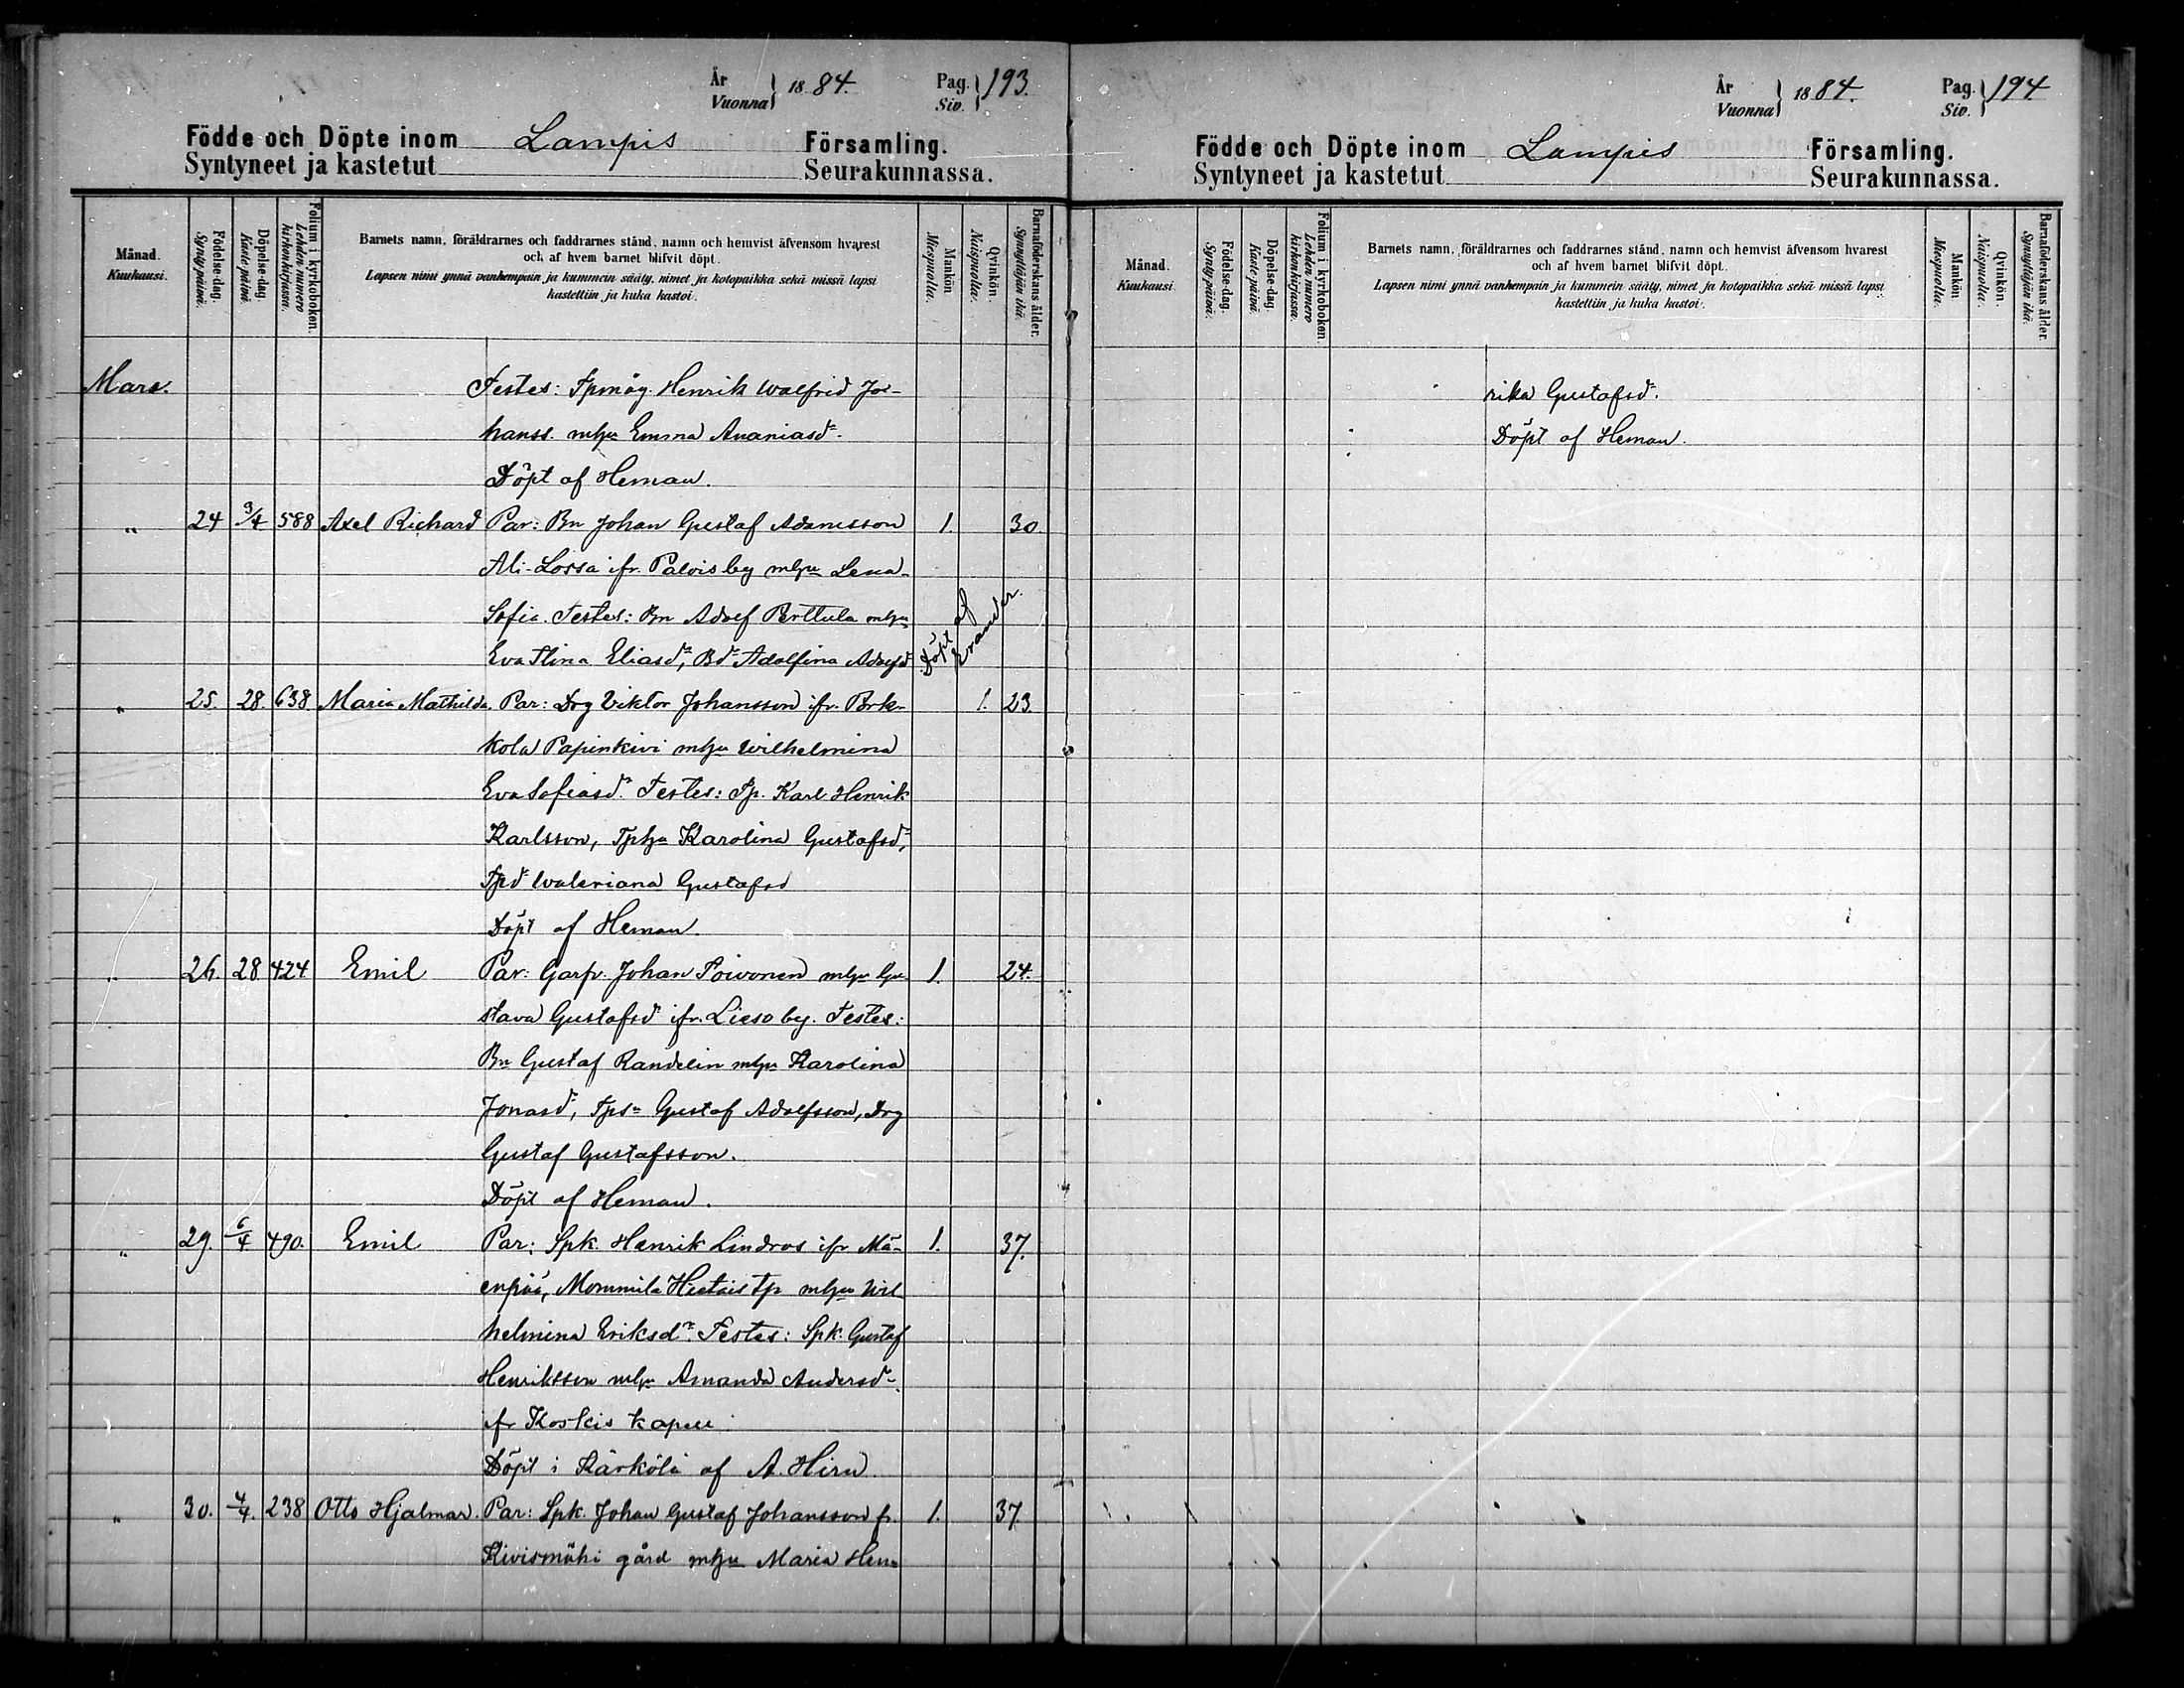 År
Vuonna } 1884.
Pag.
Siv. } 193.
Födde och Döpte inom Lampis Församling.
Syntyneet ja kastetut Seurakunnassa.
Månad. Kuukausi.
Födelse-dag. Synty-päivä.
Döpelse-dag. Kaste-päivä.
Folium i kyrkoboken. Lehden numero kirkonkirjassa.
Barnets namn, föräldrarnes och faddrarnes stånd, namn och hemvist äfvensom hvarest
och af hvem barnet blifvit döpt.
Lapsen nimi ynnä vanhempain ja kummein sääty, nimet ja kotopaikka sekä missä lapsi
kastettiin ja kuka kastoi.
Mankön. Miespuolia.
Qvinkön. Naispuolia.
Barnaföderskans ålder. Synnyttäjän ikä.
Mars. Testes: Tpmåg. Henrik Walfrid Jo-
hanss. mhu Emma Ananiasdr.
Döpt af Heman.
" 24 3/4 588 Axel Richard Par: Bn Johan Gustaf Adamsson 1. 30.
Ali-Lossa ifr. Palvis by mhu Lena
Sofia. Testes: Bn Adolf Perttula mhu
Eva Stina Eliasdr, Bdr Adolfina Adolfsdr
Döpt af
" 25. 28. 638. Maria Mathilda. Par: Drg Viktor Johansson ifr. Pork- 1. 23.
kola Papinkivi mhu Wilhelmina
Eva Sofiasdr. Testes: Tp. Karl Henrik
Karlsson, Tphu Karolina Gustafsdr,
Tpdr Waleriana Gustafsd
Döpt af Heman.
" 26. 28 424 Emil Par: Garfv. Johan Toivonen mhu Gu- 1. 24.
stava Gustafsdr ifr. Lieso by. Testes:
Bn Gustaf Randelin mhu Karolina
Jonasdr, Tpsn Gustaf Adolfsson, Drg
Gustaf Gustafsson.
Döpt af Heman.
" 29. 6/4 490. Emil Par: Spk. Henrik Lindros ifr Mä- 1. 37.
enpää, Mommila Hietois tp mhu Wil
helmina Eriksdr. Testes: Spk. Gustaf
Henriksson mhu Amanda Andersdr
ifr Koskis kapell.
Döpt i Kärkölä af A. Hirn.
" 30. 4/4. 238 Otto Hjalmar. Par: Spk. Johan Gustaf Johansson fr. 1. 37.
Kivismäki gård mhu Maria Hen-
År
Vuonna } 1884.
Pag.
Siv. } 194
Födde och Döpte inom Lampis Församling.
Syntyneet ja kastetut Seurakunnassa.
Månad. Kuukausi
Födelse-dag. Synty-päivä.
Döpelse-dag. Kaste-päivä.
Folium i kyrkoboken. Lehden numero kirkonkirjassa.
Barnets namn, föräldrarnes och faddrarnes stånd, namn och hemvist äfvensom hvarest
och af hvem barnet blifvit döpt.
Lapsen nimi ynnä vanhempain ja kummein sääty, nimet ja kotopaikka sekä missä lapsi
kastettiin ja kuka kastoi.
Mankön. Miespuolia.
Qvinkön. Naispuolia.
Barnaföderskans ålder. Synnyttäjän ikä.
rika Gustafsdr.
Döpt af Heman.